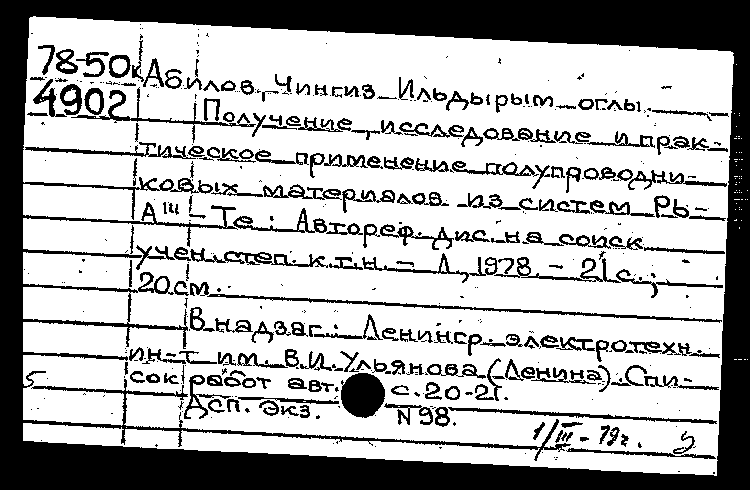 78-50к Абилов, Чингиз Ильдырым оглы.
4902 Получение, исследование и прак-
тическое применение полупроводни-
ковых материалов из систем Pb-
Aᴵᴵᴵ - Te : Автореф. дис. на соиск.
учен. степ. к.т.н. - Л., 1978. - 21 с. ;
20 см.
В надзаг.: Ленингр. электротехн.
ин-т им. В.И. Ульянова (Ленина). Спи-
5 сок работ авт. с. 20-21.
Дсп. Экз. N 98.
1/III - 79 г.